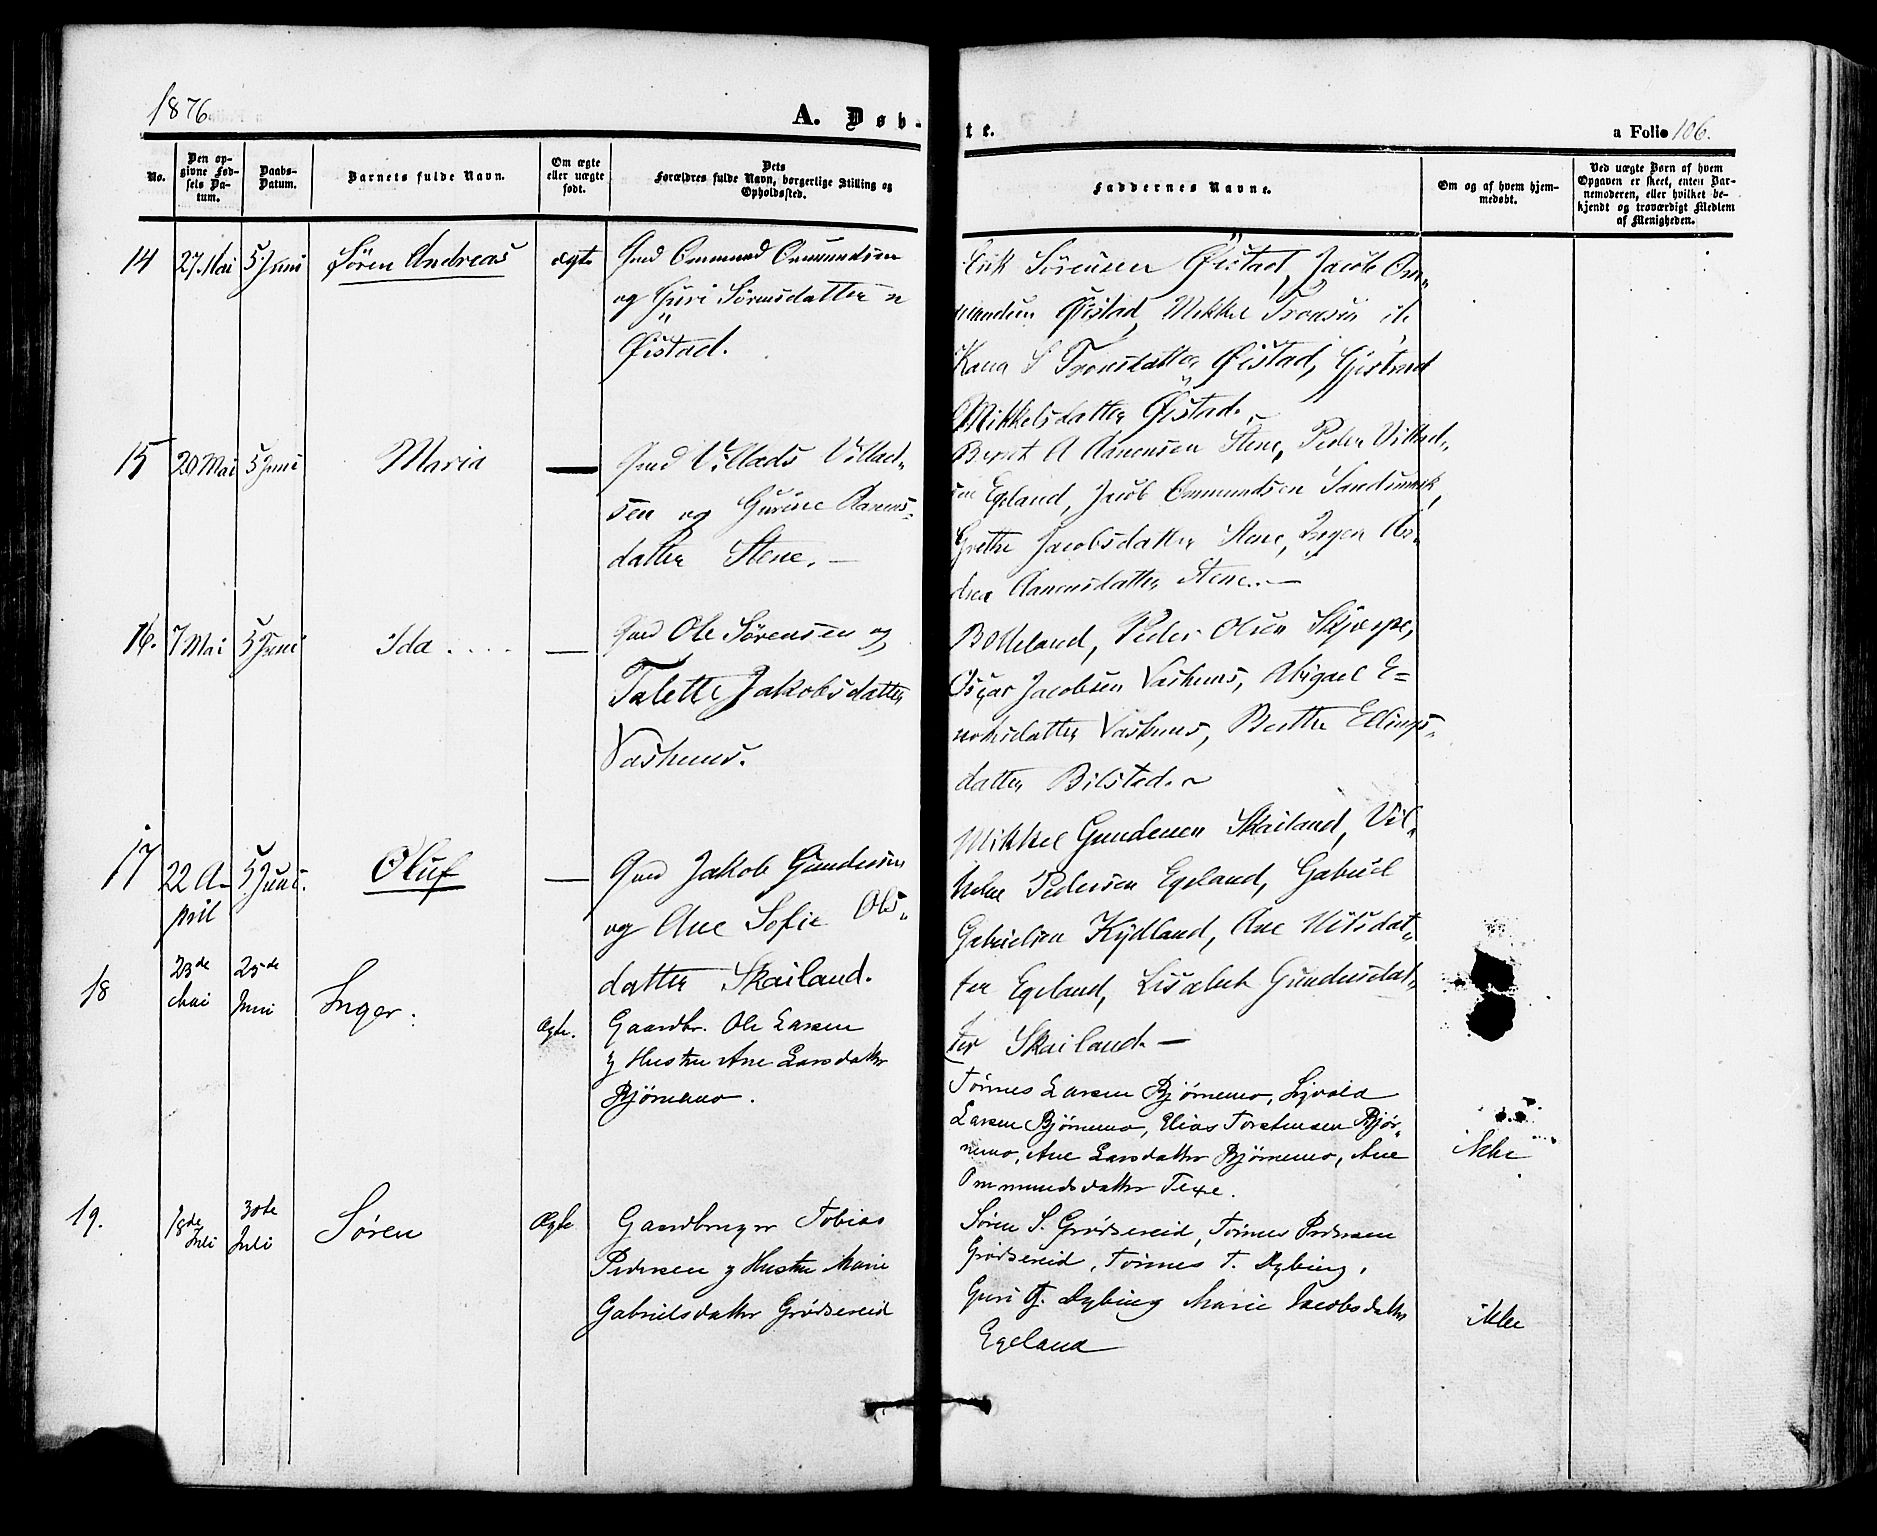 1876
A. Døb-
te.
a Folio 106.
No.
Den op-
givne Fød-
sels Da-
tum.
Daabs-
Datum.
Barnets fulde Navn.
Om ægte
eller uægte
født.
Dets
Forældres fulde Navn, borgerlige Stilling og
Opholdssted.
Faddernes Navne.
Om og af hvem hjem-
medøbt.
Ved uægte Børn af hvem
Opgaven er skeet, enten Bar-
nemoderen, eller hvilket be-
kjendt og troværdigt Medlem
af Menigheden.
14
27 Mai
5 Juni
Søren Andreas
ægte
Gmd Ommund Ommundsen
og Guri Sørensdatter
Øistad.
Erik Sørensen Øistad, Jacob Om-
mundsen Øistad Mikkel Tronsen
S Tronsdatter Øistad,
Mikkelsdatter Øistad.
15
20 Mai
5 Juni
Maria
Gmd Villads Villad-
sen og Gurine Aanens-
datter Stene.
Bernt A Aanensen Stene, Peder Villad-
sen Egeland, Jacob Ommundsen
Grethe Jacobsdatter Stene, Inger
Aanensdatter Stene.
16.
7 Mai
5 Juni
Ida
Gmd Ole Sørensen og
Talette Jakobsdatter
Vashuus.
Peder Olsen Skjerpe,
Oscar Jacobsen Vashuus, Abigael E=
noksdatter Vashuus, Berthe Ellings-
datter Bilstad.
17
22 A-
pril
5 Juni.
Oluf
Gmd Jakob Gundersen
og Ane Sofie Ols-
datter Skailand.
Mikkel Gundersen Skailand, Vil-
helm Pedersen Egeland, Gabriel
Gabrielsen Kydland, Ane Nilsdat-
ter Egeland, Lisabet Gundersdat-
ter Skailand.
18
23de
Mai
25de
Juni
Inger.
Ægte.
Gaardbr. Ole Larsen
og Hustru Ane Larsdatter
Bjørnemo.
Tønnes Larsen Bjørnemo, Sigvald
Larsen Bjørnemo, Elias Torstensen Bjør-
nemo, Ane Larsdatter Bjørnemo, Ane
Ommundsdatter Texe.
ikke
19.
18de
Juli
30te
Juli
Søren
Ægte
Gaardbruger Tobias
Pedersen og Hustru Marie
Gabrielsdatter Grødsereid
Søren S. Grødsereid, Tønnes Pedersen
Grødsereid, Tønnes T. Dybing,
Guri Dybing Marie Jacobsdatter
Egeland
ikke